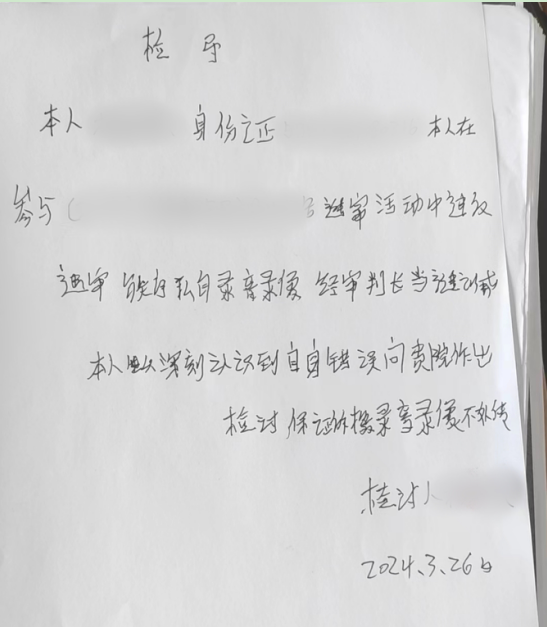 检讨
本人 身份证 本人在
参与( 巡审活动中违反
巡审 私自录音录像 经审判长当庭训诫
本人已深刻认识到自身错误向贵院作出
检讨,保证所摄录音录像不外传
检讨人
2024.3.26日